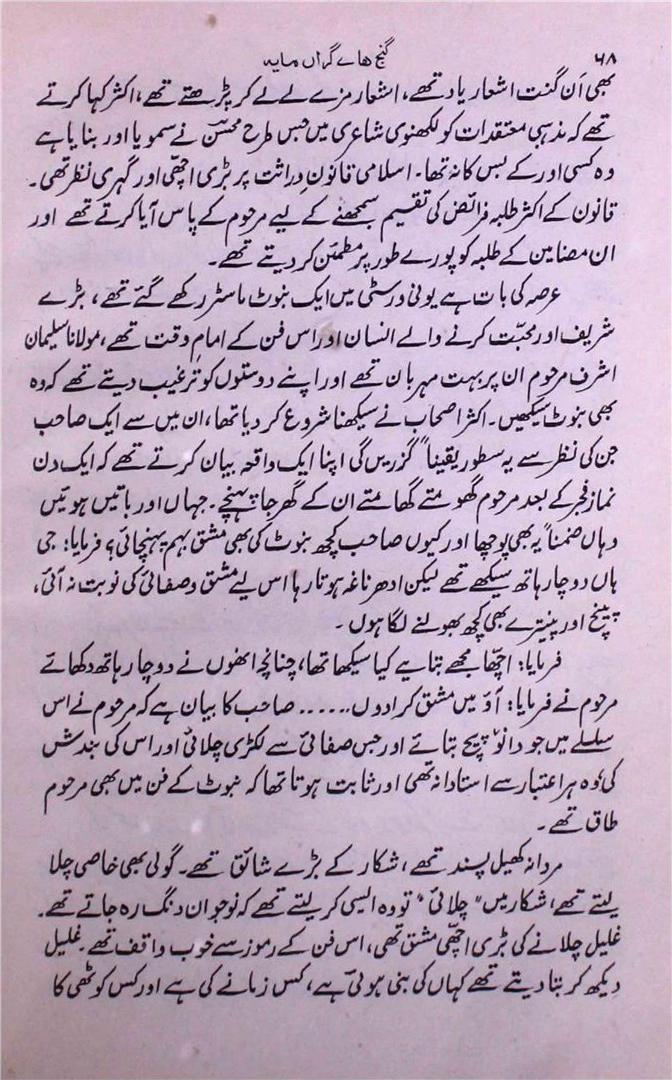 ۶۸
گنج ہائے گراں مایہ
بھی اَن گنت اشعار یاد تھے، اشعار مزے لے لے کر پڑھتے تھے، اکثر کہا کرتے
تھے کہ مذہبی معتقدات کو لکھنوی شاعری میں جس طرح محسنؔ نے سمویا اور بنایا ہے
وہ کسی اور کے بس کا نہ تھا۔ اسلامی قانونِ وراثت پر بڑی اچھی اور گہری نظر تھی۔
قانون کے اکثر طلبہ فرائض کی تقسیم سمجھنے کے لیے مرحوم کے پاس آیا کرتے تھے اور
ان مضامین کے طلبہ کو پورے طور پر مطمئن کر دیتے تھے۔
عرصہ کی بات ہے یونی ورسٹی میں ایک بنوٹ ماسٹر رکھے گئے تھے، بڑے
شریف اور محبّت کرنے والے انسان اور اس فن کے امامِ وقت تھے، مولانا سلیمان
اشرف مرحوم ان پر بہت مہربان تھے اور اپنے دوستوں کو ترغیب دیتے تھے کہ وہ
بھی بنوٹ سیکھیں۔ اکثر اصحاب نے سیکھنا شروع کر دیا تھا، ان میں سے ایک صاحب
جن کی نظر سے یہ سطور یقیناً گزریں گی اپنا ایک واقعہ بیان کرتے تھے کہ ایک دن
نماز فجر کے بعد مرحوم گھومتے گھامتے ان کے گھر جا پہنچے۔ جہاں اور باتیں ہوئیں
وہاں ضمناً یہ بھی پوچھا اور کیوں صاحب کچھ بنوٹ کی بھی مشق بہم پہنچائی؟ فرمایا: جی
ہاں دو چار ہاتھ سیکھے تھے لیکن ادھر ناغہ ہوتا رہا اس لیے مشق و صفائی کی نوبت نہ آئی،
پیچ اور پینترے بھی کچھ بھولنے لگا ہوں۔
فرمایا: اچھا مجھے بتایے کیا سیکھا تھا، چنانچہ انھوں نے دو چار ہاتھ دکھائے
مرحوم نے فرمایا: آؤ میں مشق کرا دوں...... صاحب کا بیان ہے کہ مرحوم نے اس
سلسلے میں جو دانو پیچ بتائے اور جس صفائی سے لکڑی چلائی اور اس کی بندش
کی وہ ہر اعتبار سے استادانہ تھی اور ثابت ہوتا تھا کہ بنوٹ کے فن میں بھی مرحوم
طاق تھے۔
مردانہ کھیل پسند تھے، شکار کے بڑے شائق تھے۔ گولی بھی خاصی چلا
لیتے تھے، شکار میں "چلائی" تو وہ ایسی کر لیتے تھے کہ نوجوان دنگ رہ جاتے تھے۔
غلیل چلانے کی بڑی اچھی مشق تھی، اس فن کے رموز سے خوب واقف تھے۔ غلیل
دیکھ کر بتا دیتے تھے کہاں کی بنی ہوئی ہے، کس زمانے کی ہے اور کس کوٹھی کا